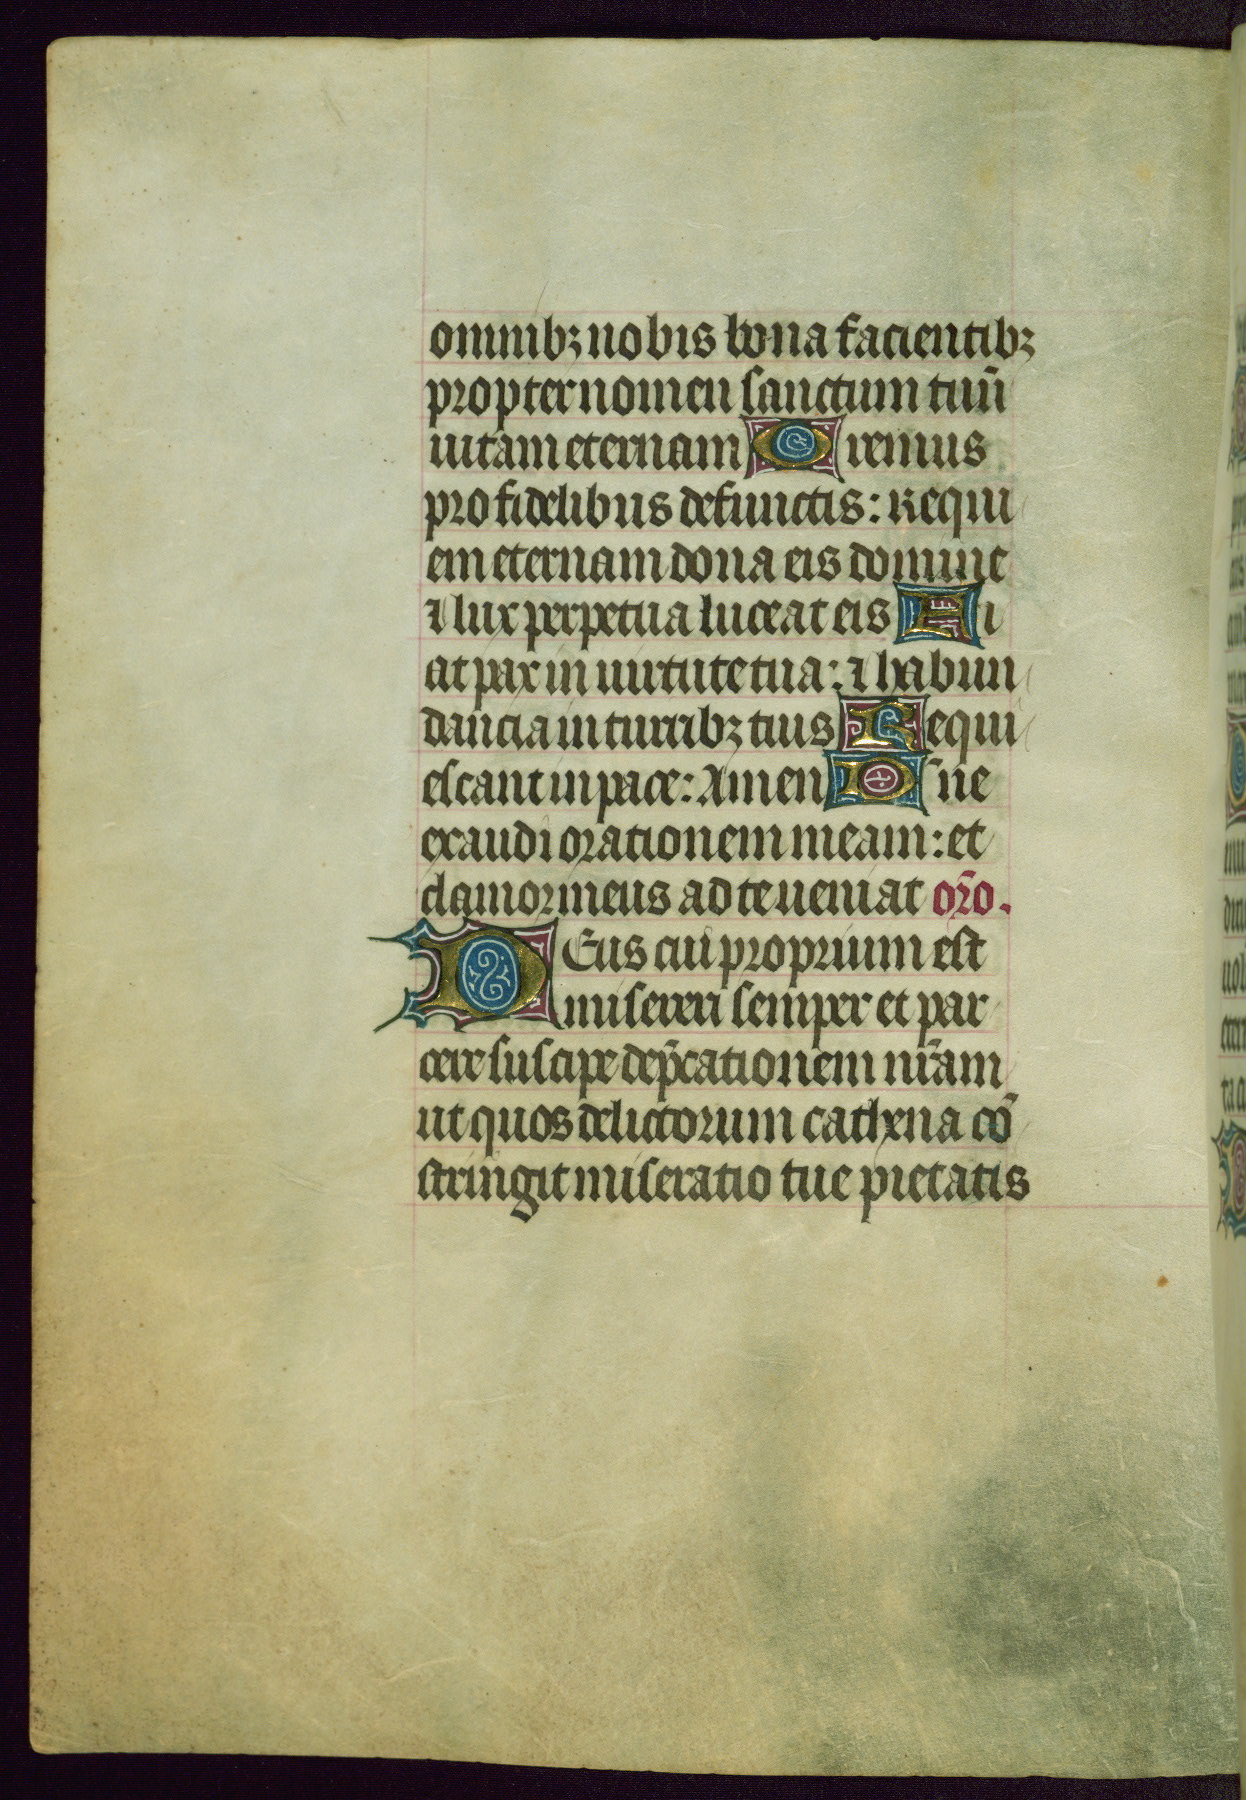 omnibꝫ nobis bona facientibꝫ
propter nomen sanctum tuū
uitam eternam Oremus
pro fidelibus defunctis: Requi
em eternam dona eis domine
⁊ lux perpetua luceat eis Fi
at pax in uirtute tua: ⁊ habun
dancia in turribꝫ tuis Requi
escant in pace: Amen Dn̄e
exaudi orationem meam: et
clamor meus ad te ueniat or̄o.
DEus cui proprium est
misereri semper et par
cere suscipe dep̄cationem nr̄am
ut quos delictorum cathena cō
stringit miseratio tue pietatis